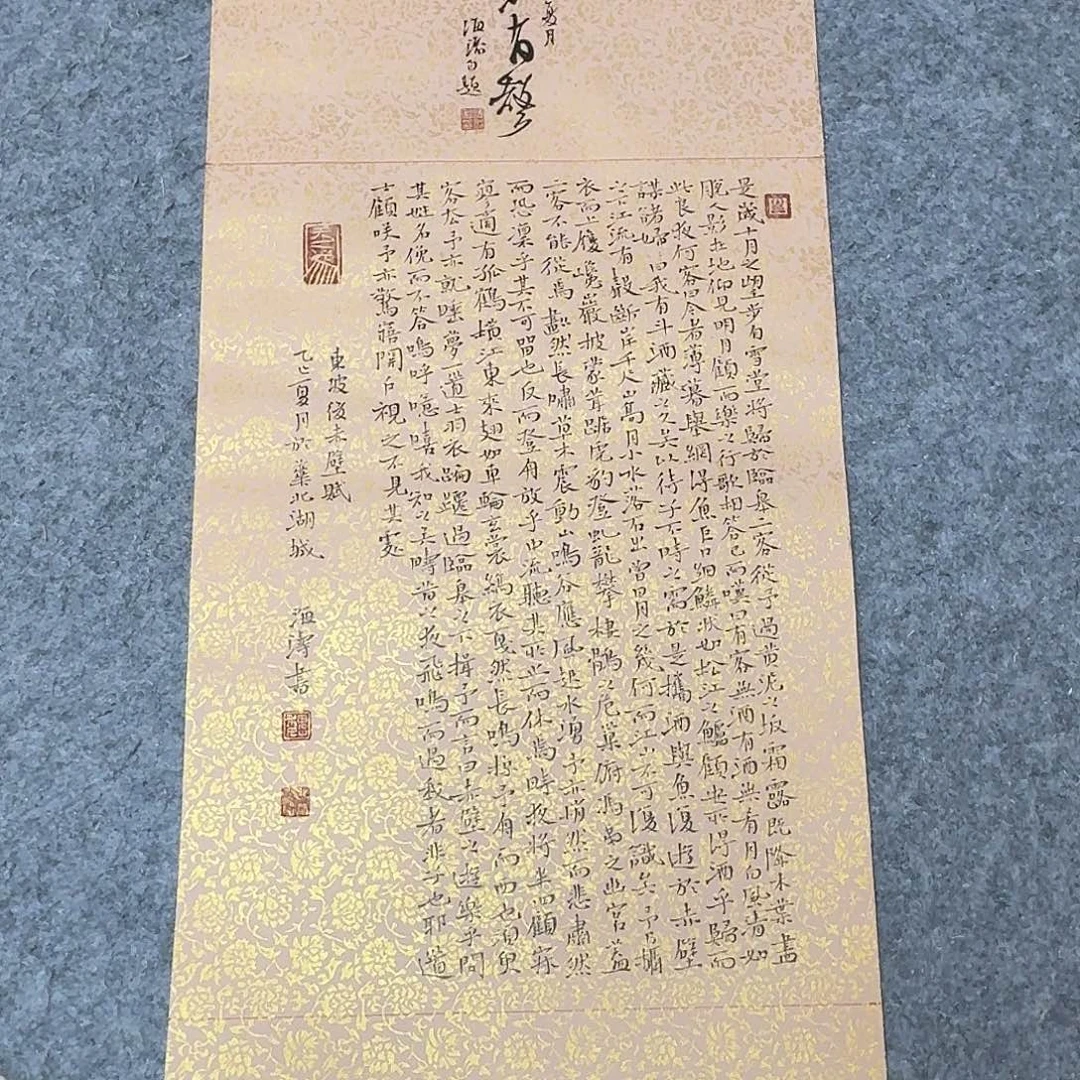 夏月
有聲
海濤自題
是歲十月之望步自雪堂將歸於臨皋二客從予過黃泥之坂霜露既降木葉盡
脫人影在地仰見明月顧而樂之行歌相答已而嘆曰有客無酒有酒無肴月白風清如
此良夜何客曰今者薄暮舉網得魚巨口細鱗狀如松江之鱸顧安所得酒乎歸而
謀諸婦婦曰我有斗酒藏之久矣以待子不時之需於是攜酒與魚復遊於赤壁
之下江流有聲斷岸千尺山高月小水落石出曾日月之幾何而江山不可復識矣予乃攝
衣而上履巉巖披蒙茸踞虎豹登虬龍攀棲鶻之危巢俯馮夷之幽宮蓋
二客不能從焉劃然長嘯草木震動山鳴谷應風起水湧予亦悄然而悲肅然
而恐凜乎其不可留也反而登舟放乎中流聽其所止而休焉時夜將半四顧寂
寥適有孤鶴橫江東來翅如車輪玄裳縞衣戛然長鳴掠予舟而西也須臾
客去予亦就睡夢一道士羽衣蹁躚過臨皋之下揖予而言曰赤壁之遊樂乎問
其姓名俛而不答嗚呼噫嘻我知之矣疇昔之夜飛鳴而過我者非子也耶道
士顧笑予亦驚寤開戶視之不見其處
東坡後赤壁賦
乙巳夏月於華北湖城 海濤書